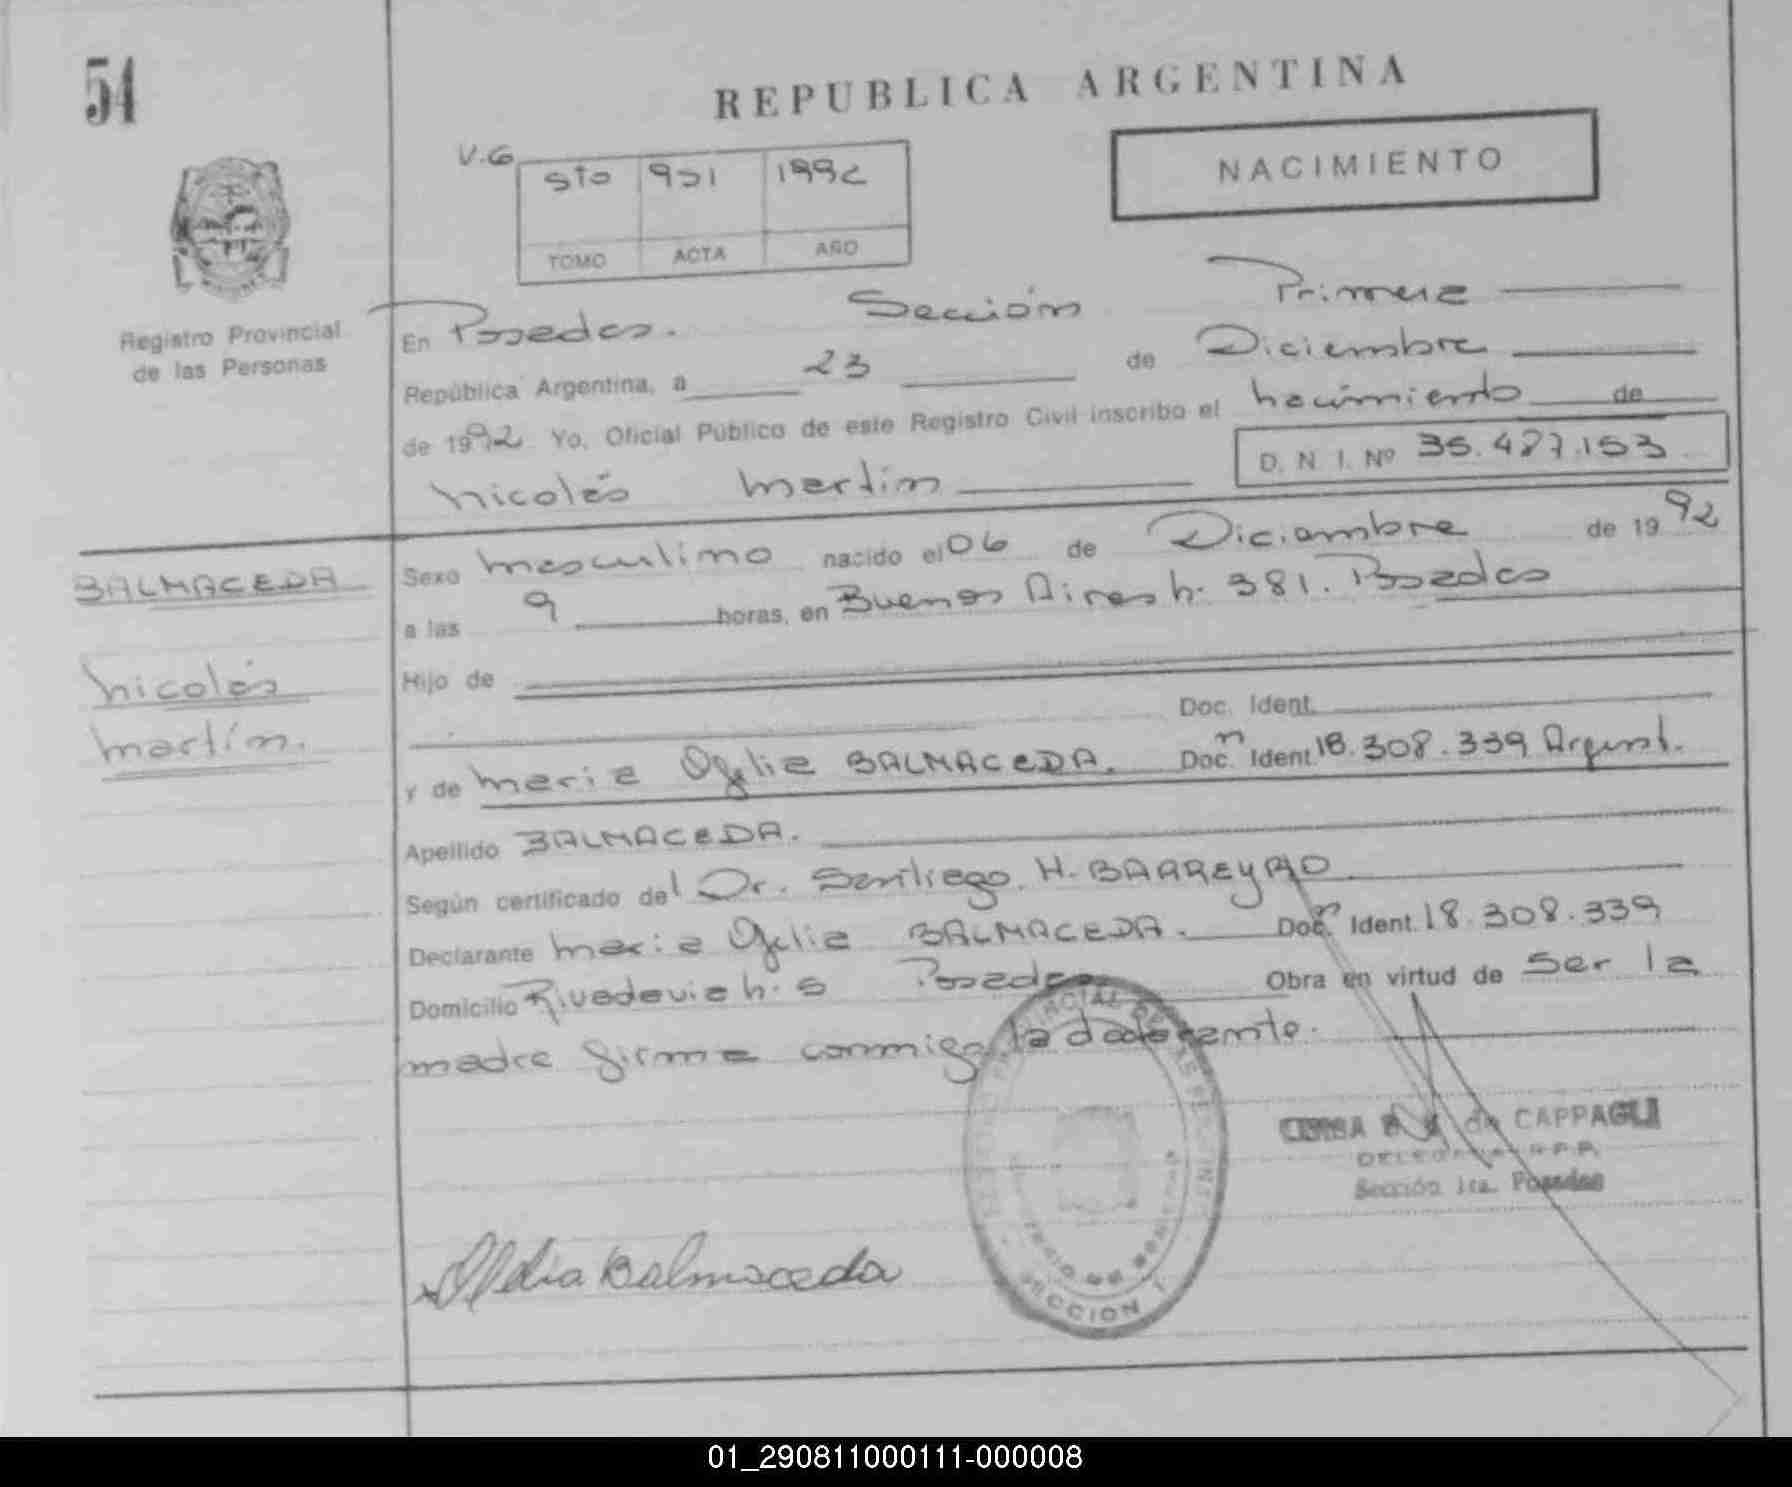 54
REPUBLICA ARGENTINA
NACIMIENTO
V.G
5to 921 1992
TOMO ACTA AÑO
Registro Provincial
de las Personas
En Posadas. Sección Primera
República Argentina, a 23 de Diciembre
de 1992 Yo, Oficial Público de este Registro Civil inscribo el nacimiento de
Nicolás Martín D. N. I. Nº 35.487.153
BALMACEDA
Nicolás
Martín.
Sexo masculino nacido el 06 de Diciembre de 1992
a las 9 horas, en Buenos Aires N. 381. Posadas
Hijo de
Doc. Ident.
y de Maria Ofelia BALMACEDA. Doc. Ident. 18.308.339 Argent.
Apellido BALMACEDA.
Según certificado del Dr. Santiago. H. BARREYRO
Declarante Maria Ofelia BALMACEDA. Doc. Ident. 18.308.339
Domicilio Rivadavia N. 5 Posadas Obra en virtud de ser la
madre firma conmigo la declarante.
de CAPPAGLI
Sección 1ra. Posadas
SECCION 1
Balmaceda
01_290811000111-000008